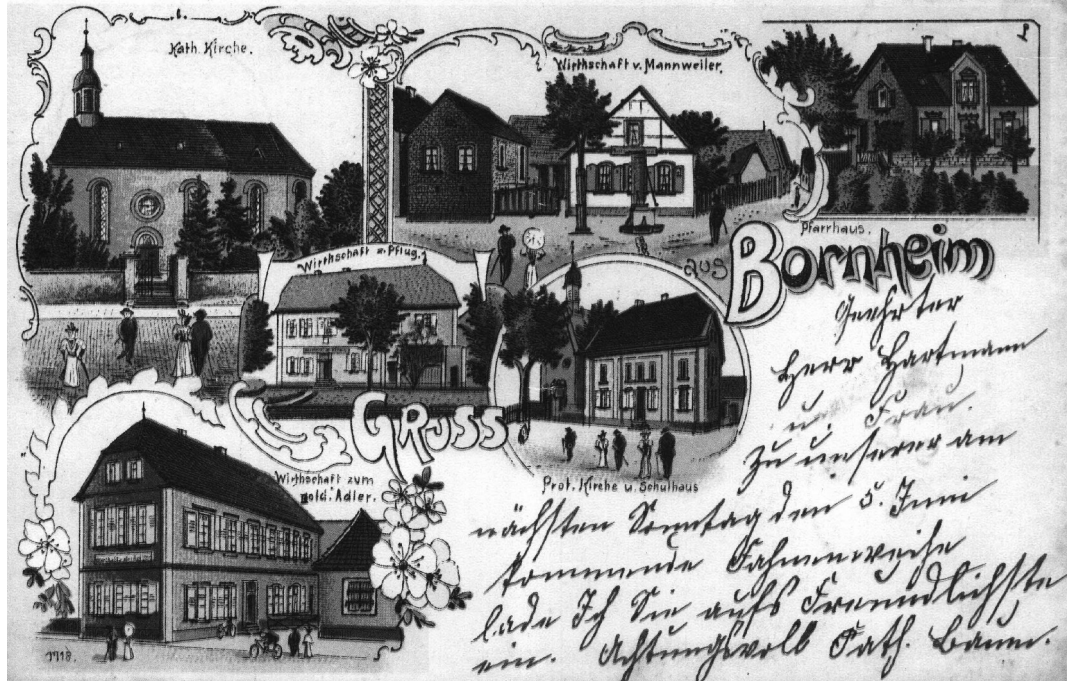 Kath. Kirche.
Wirthschaft v. Mannweiler.
Pfarrhaus.
Wirthschaft z. Pflug.
Gruss
aus
Bornheim
Wirthschaft zum
gold. Adler.
Prot. Kirche u. Schulhaus
1718.
Geehrter
Herr Hartmann
u. Frau.
Zu unserer am
nächsten Sonntag den 5. Juni
kommende Fahnenweihe
lade Ich Sie aufs Freundlichste
ein. Achtungsvoll Kath. Baum.